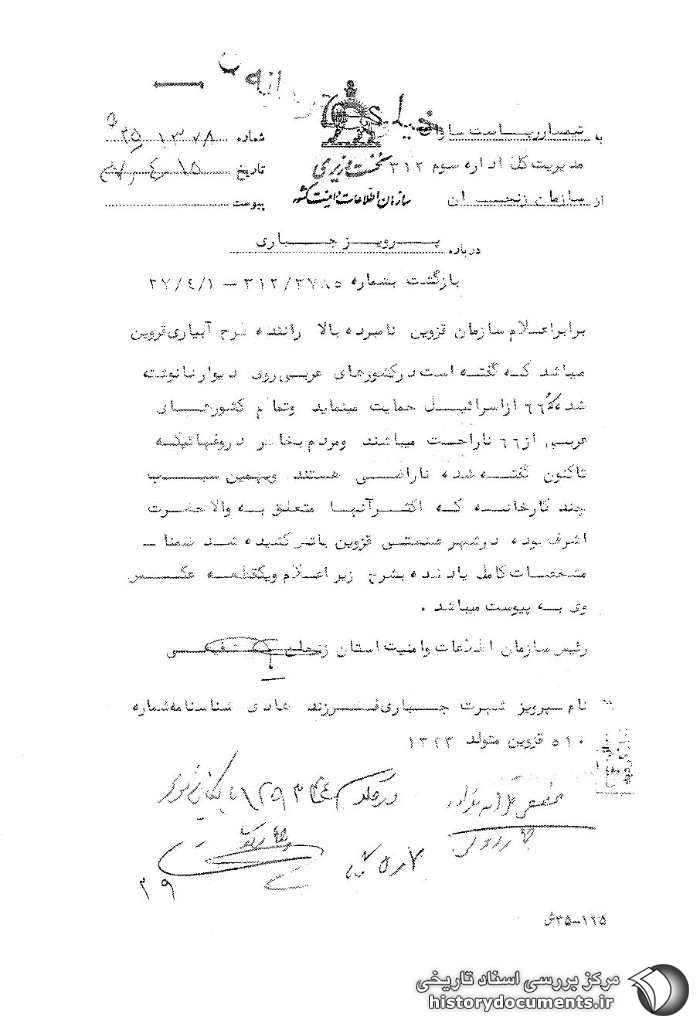 خیلی محرمانه
به تیمسار ریاست ساواک شماره ۲۵۱۳۷۸
مدیریت کل اداره سوم ۳۱۲ نخست وزیری تاریخ ۱۵ ر ۴ ر
از سازمان زنجان سازمان اطلاعات و امنیت کشور پیوست
درباره پرویز جباری
بازگشت بشماره ۳۱۲/۲۷۸۵ – ۲۷/۴/۱
برابر اعلام سازمان قزوین نامبرده بالا راننده طرح آبیاری قزوین
میباشد که گفته است در کشورهای عربی روی دیوارها نوشته
شده که ۶۶ از اسرائیل حمایت مینماید وتمام کشورهای
عربی از ۶۶ ناراحت میباشند ومردم بخاطر دروغهائیکه
تاکنون گفته شده ناراضی هستند وبهمین سبب
چند کارخانه که اکثر آنها متعلق به والاحضرت
اشرف بوده در شهر صنعتی قزوین باتش کشیده شد ضمنا –
مشخصات کامل یاد شده بشرح زیر اعلام ویکقطعه عکس
وی به پیوست میباشد .
رئیس سازمان اطلاعات وامنیت استان زنجان
نام پرویز شهرت جباری فرزند هادی شناسنامه شماره
۵۱۰ قزوین متولد ۱۳۲۳
۲۹
۳۵–۱۲۵ش
مرکز بررسی اسناد تاریخی
historydocuments.ir